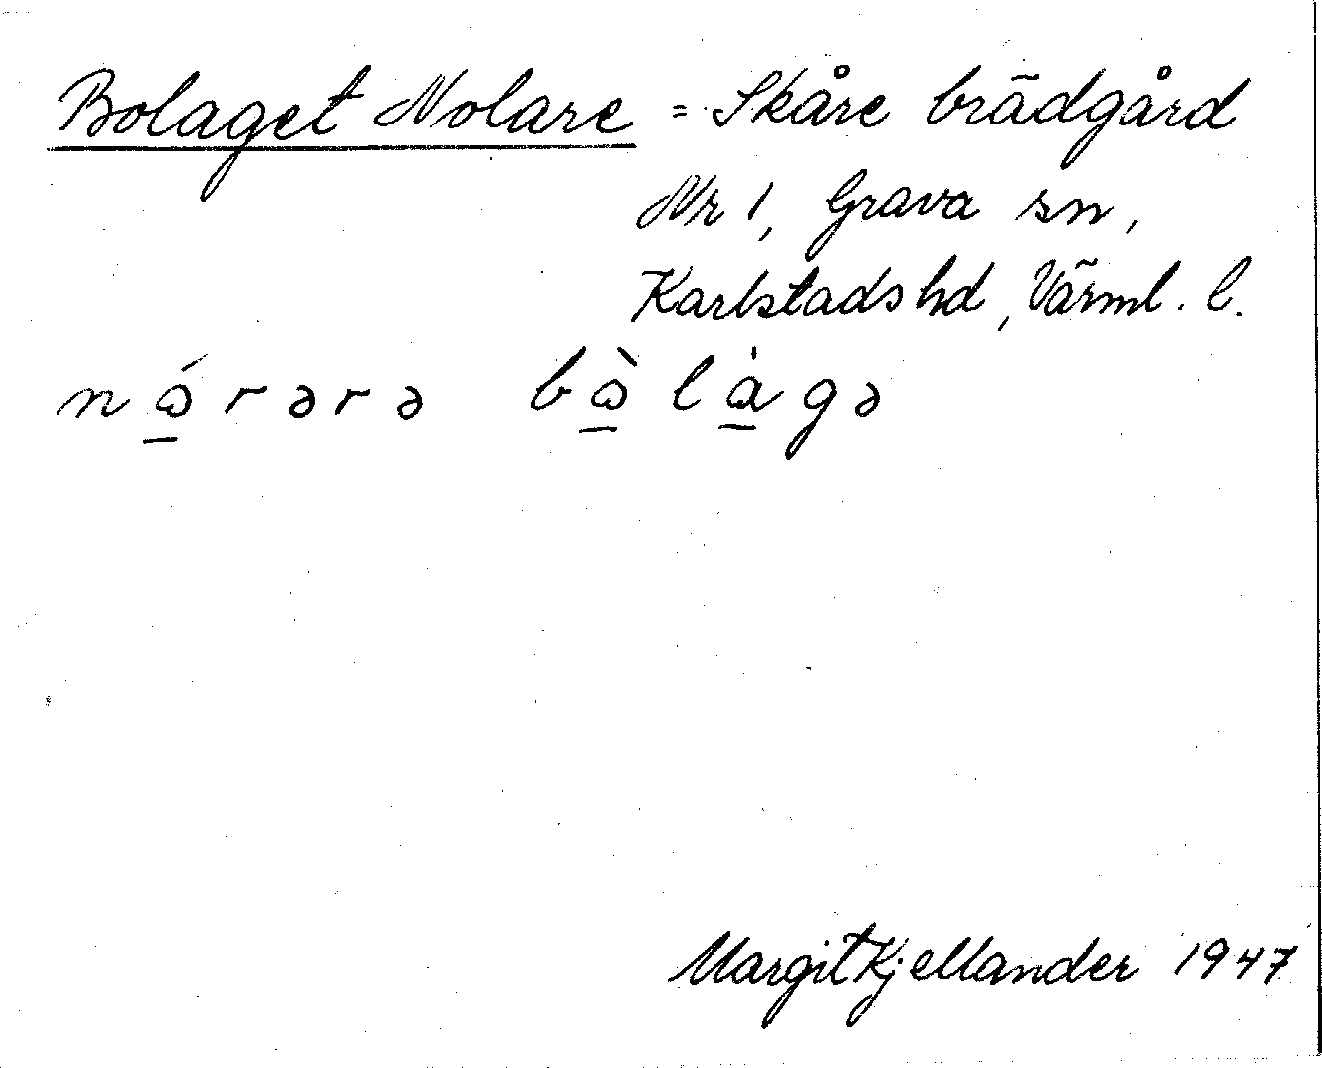 Bolaget Nolare = Skåre brädgård
Nr 1, Grava sn,
Karlstads hd, Värml. l.
nǫ́rərə bǫ̀làgə
Margit Kjellander 1947